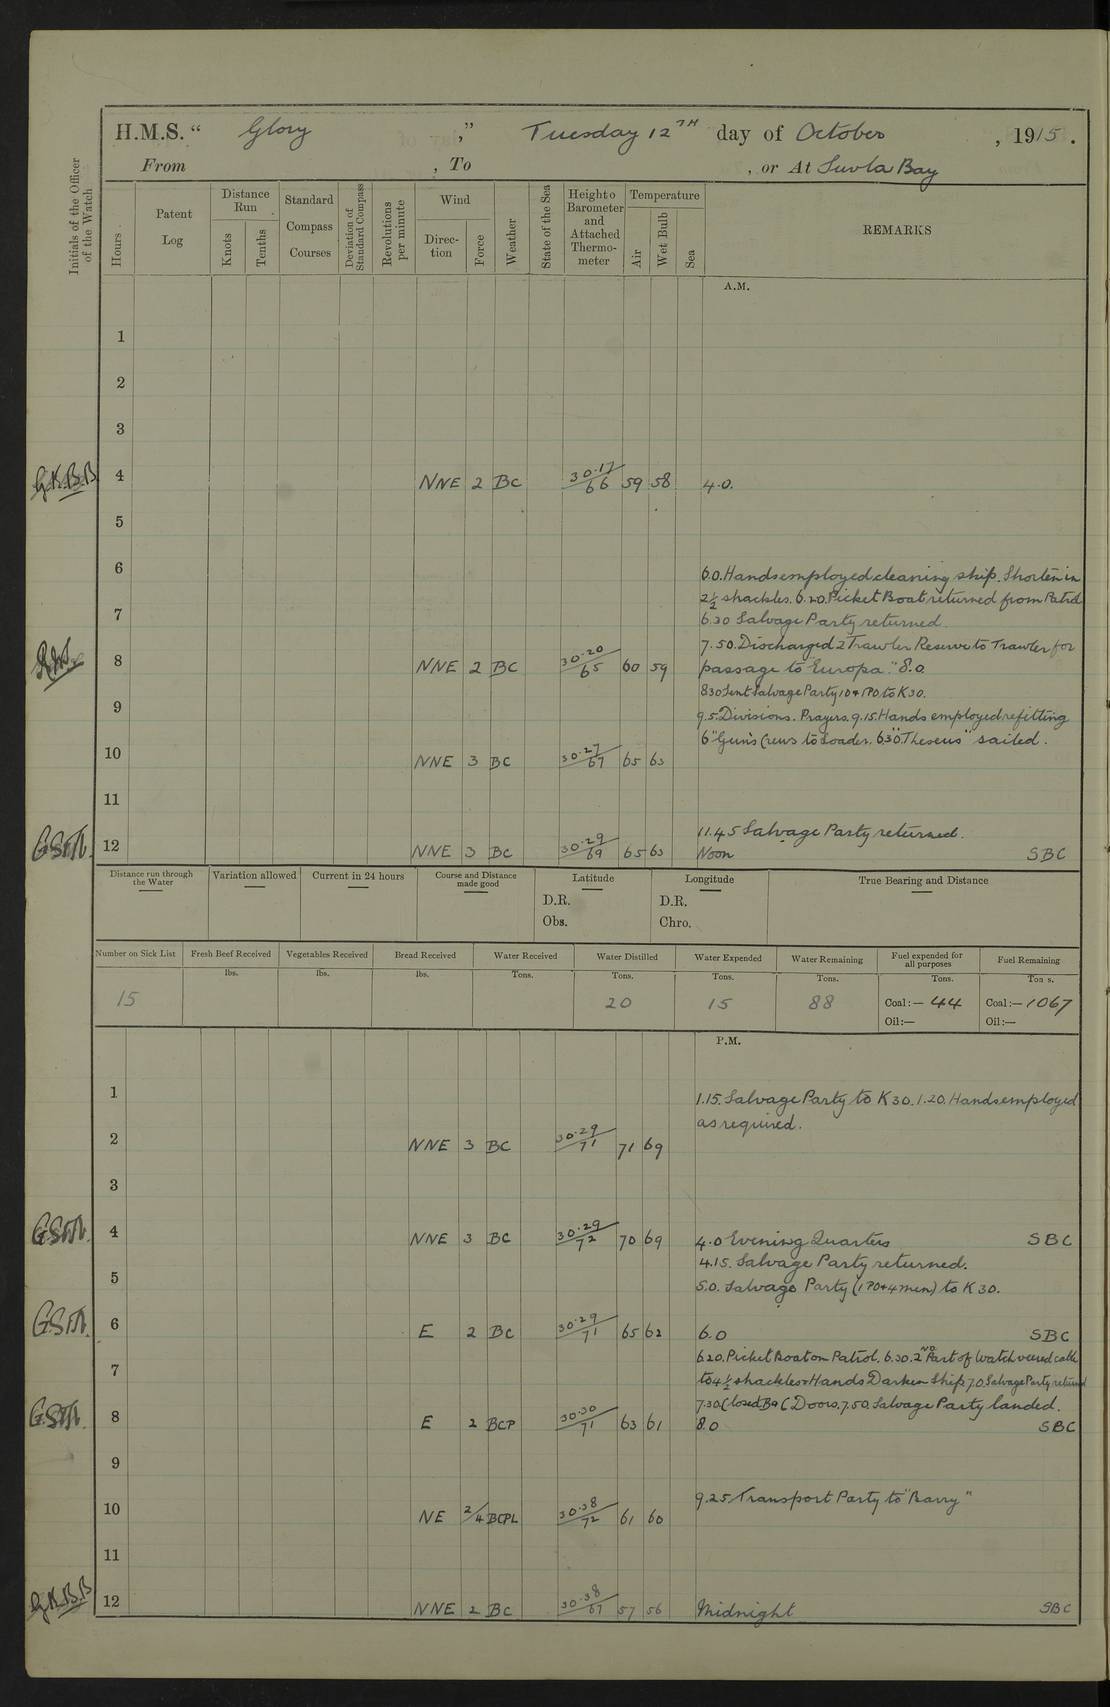 H.M.S. "Glory," Tuesday 12TH day of October, 1915.
From , To , or At Suvla Bay
Initials of the Officer of the Watch
Hours
Patent Log
Distance Run
Knots
Tenths
Standard Compass Courses
Deviation of Standard Compass
Revolutions per minute
Wind
Direc-tion
Force
Weather
State of the Sea
Height o Barometer and Attached Thermo-meter
Temperature
Air
Wet Bulb
Sea
REMARKS
A.M.
1
2
3
G.K.B.B 4 NNE 2 BC 30.17/66 59 58 4.0.
5
6 6.0. Hands employed cleaning ship. Shorten in
2½ shackles. 6.20. Picket Boat returned from Patrol
7 6.30 Salvage Party returned.
7.50. Discharged 2 Trawler Reserve to Trawler for
8 NNE 2 BC 30.20/65 60 59 passage to Europa." 8.0
8.30 Sent Salvage Party 10 + 1 PO. to K30.
9 9.5. Divisions. Prayers. 9.15. Hands employed refitting
6" Guns Crews to Loader. 6.30. "Theseus" sailed.
10 NNE 3 BC 30.27/67 65 63
11
11.45 Salvage Party returned.
GSM. 12 NNE 3 BC 30.29/69 65 63 Noon SBC
Distance run through the Water
Variation allowed
Current in 24 hours
Course and Distance made good
Latitude
D.R.
Obs.
Longitude
D.R.
Chro.
True Bearing and Distance
Number on Sick List
15
Fresh Beef Received
lbs.
Vegetables Received
lbs.
Bread Received
lbs.
Water Received
Tons.
Water Distilled
Tons.
20
Water Expended
Tons.
15
Water Remaining
Tons.
88
Fuel expended for all purposes
Tons.
Coal:— 44
Oil:—
Fuel Remaining
Tons.
Coal:— 1067
Oil:—
P.M.
1 1.15. Salvage Party to K30. 1.20. Hands employed
as required.
2 NNE 3 BC 30.29/71 71 69
3
GSM. 4 NNE 3 BC 30.29/72 70 69 4.0 Evening Quarters SBC
4.15. Salvage Party returned.
5 5.0. Salvage Party (1 PO + 4 men) to K30.
GSM. 6 E 2 BC 30.29/71 65 62 6.0 SBC
6.20. Picket Boat on Patrol. 6.30. 2ND Part of Watch veered cable
7 to 4½ shackles + Hands Darken Ship 7.0. Salvage Party returned
7.30. Closed B9C Doors. 7.50. Salvage Party landed.
GSM. 8 E 2 BCP 30.30/71 63 61 8.0 SBC
9
9.25 Transport Party to "Barry"
10 NE 2/4 BCPL 30.38/72 61 60
11
G.K.B.B 12 NNE 2 BC 30.38/67 57 56 Midnight SBC